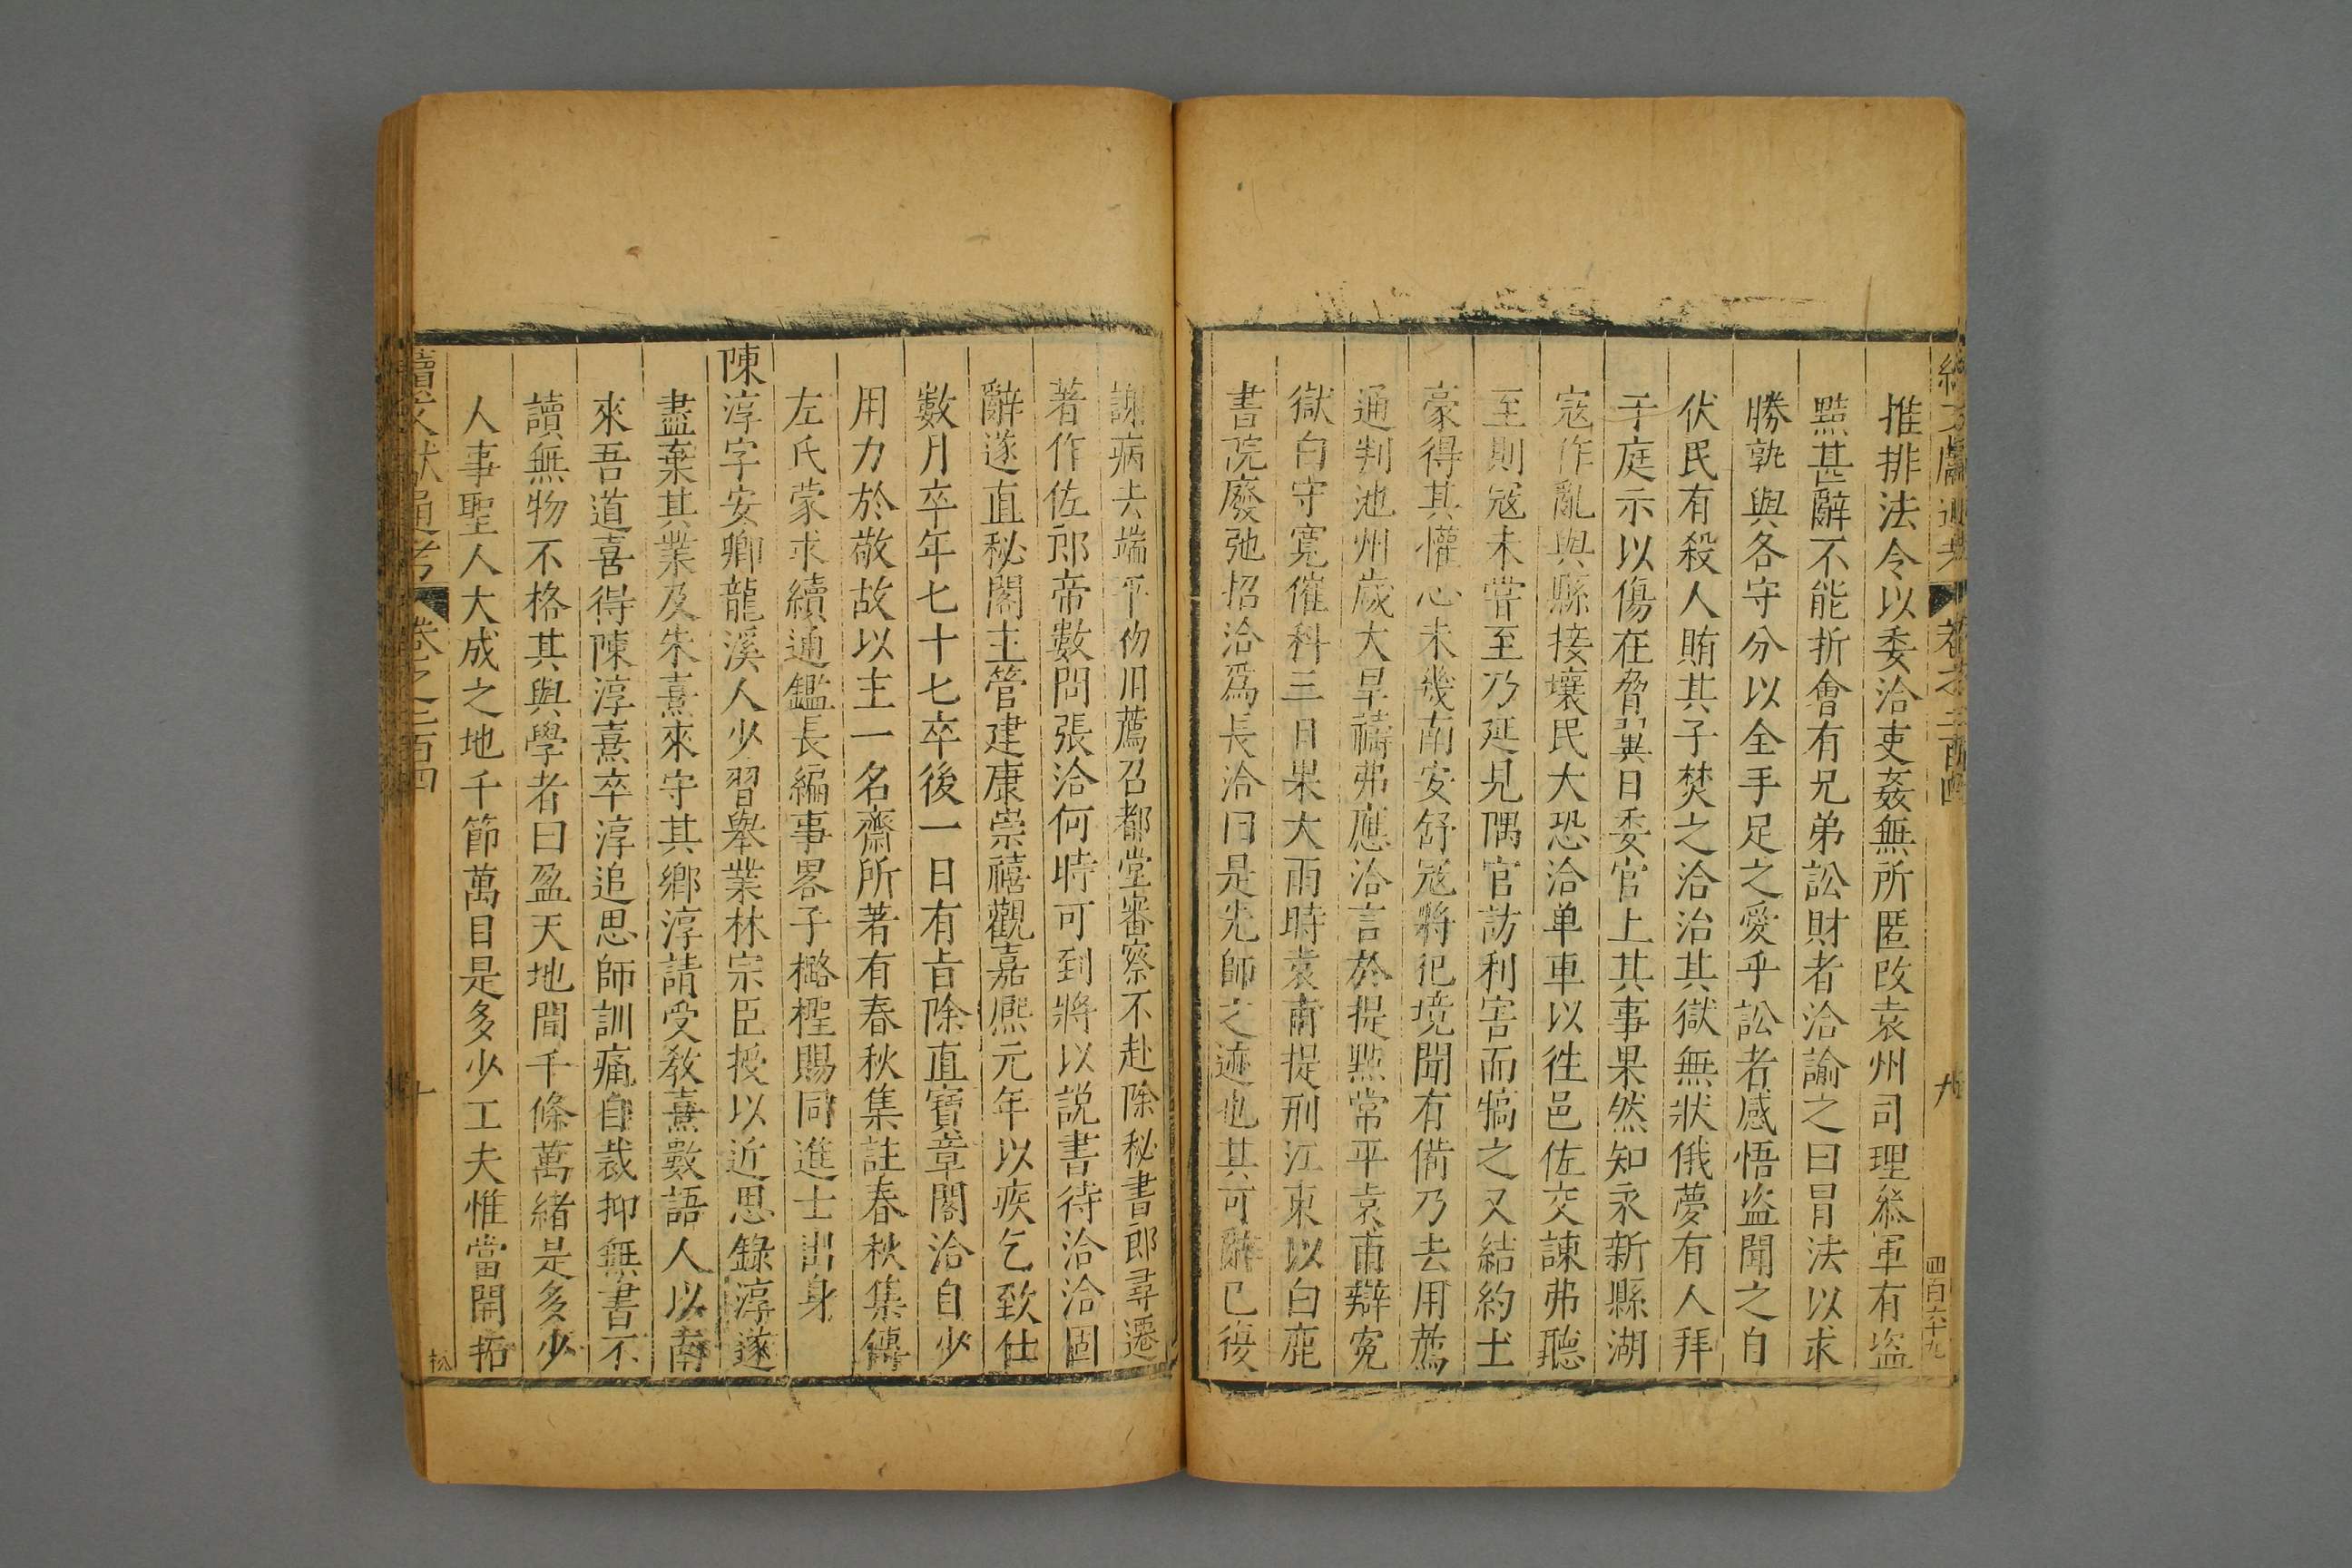 續文獻通考 卷之二百四 九 四百六十九
推排法令以委洽吏姦無所匿改袁州司理叅軍有盗
黠甚辭不能折會有兄弟訟財者洽諭之曰冐法以求
勝孰與各守分以全手足之愛乎訟者感悟盗聞之自
伏民有殺人賄其子焚之洽治其獄無狀俄夢有人拜
于庭示以傷在脅翼日委官上其事果然知永新縣湖
寇作亂與縣接壤民大恐洽单車以徃邑佐交諫弗聽
至則寇未嘗至乃延見隅官訪利害而犒之又結約土
豪得其懽心未幾南安舒寇將犯境聞有備乃去用薦
通判池州歲大旱禱弗應洽言於提㸃常平袁甫辯寃
獄白守寛催科三日果大雨時袁甫提刑江東以白鹿
書院廢弛招洽爲長洽曰是先師之迹也其可辭巳後
謝病去端平初用薦召都堂審察不赴除秘書郎尋遷
著作佐郎帝數問張洽何時可到將以説書待洽洽固
辭遂直秘閣主管建康崇禧觀嘉熈元年以疾乞致仕
數月卒年七十七卒後一日有旨除直寶章閣洽自少
用力於敬故以主一名齋所著有春秋集註春秋集傳
左氏蒙求續通鑑長編事畧子櫧檉賜同進士出身
陳淳字安卿龍溪人少習舉業林宗臣授以近思錄淳遂
盡棄其業及朱熹來守其鄉淳請受教熹數語人以南
來吾道喜得陳淳熹卒淳追思師訓痛自裁抑無書不
讀無物不格其與學者曰盈天地間千條萬緒是多少
人事聖人大成之地千節萬目是多少工夫惟當開拓
續文獻通考 卷之二百四 十 松